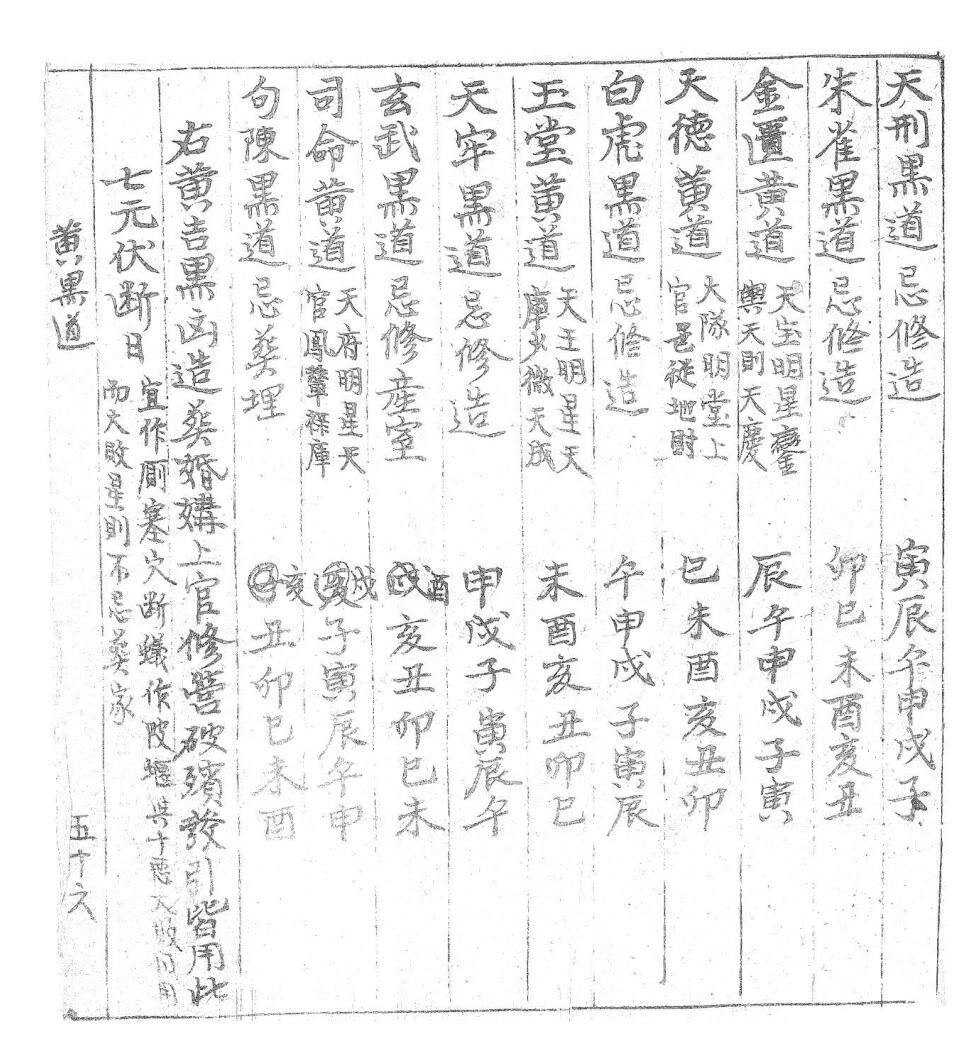 天刑黑道 忌修造 寅辰午申戌子
朱雀黑道 忌修造 卯巳未酉亥丑
金匱黃道 天宝明星鑾輿天則天慶 辰午申戌子寅
天德黃道 大隊明堂上官邑從地財 巳未酉亥丑卯
白虎黑道 忌修造 午申戌子寅辰
玉堂黃道 天王明星天庫少微天成 未酉亥丑卯巳
天牢黑道 忌修造 申戌子寅辰午
玄武黑道 忌修産室 酉亥丑卯巳未
司命黃道 天府明星天官鳳輦祿庫 戌子寅辰午申
句陳黑道 忌葬埋 亥丑卯巳未酉
右黃吉黑凶造葬婚媾上官修營破殯發引皆用此
七元伏断日 宜作厠塞穴断蟻作陂堰與十惡大敗同用
而大敗星則不忌葬家
黃黑道 五十六